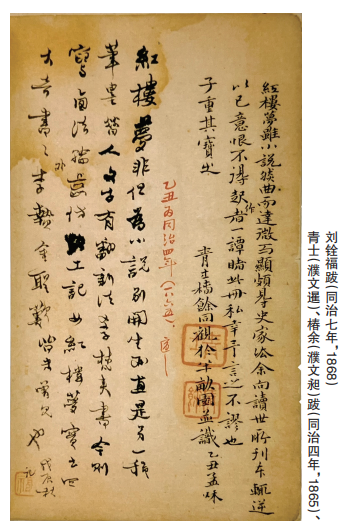 紅樓夢雖小說然曲而達微而顯頗得史家法余向讀世所刊本輒逆
以己意恨不得起作者一譚睹此冊私幸予言之不謬也
子重其寶之
青士椿餘同觀於半畝園並識乙丑孟秋
乙丑為同治四年(一八六五)。適之
紅樓夢非但為小說別開生面直是另一種
筆墨昔人文字有翻新法學梵夾書今則
寫西法輪齒仿考工記如紅樓夢實出四
大奇書之外李贄金聖歎皆未曾見也戊辰秋
記
青士(濮文暹)、椿余(濮文昶)跋(同治四年,1865)、
刘铨福跋(同治七年,1868)